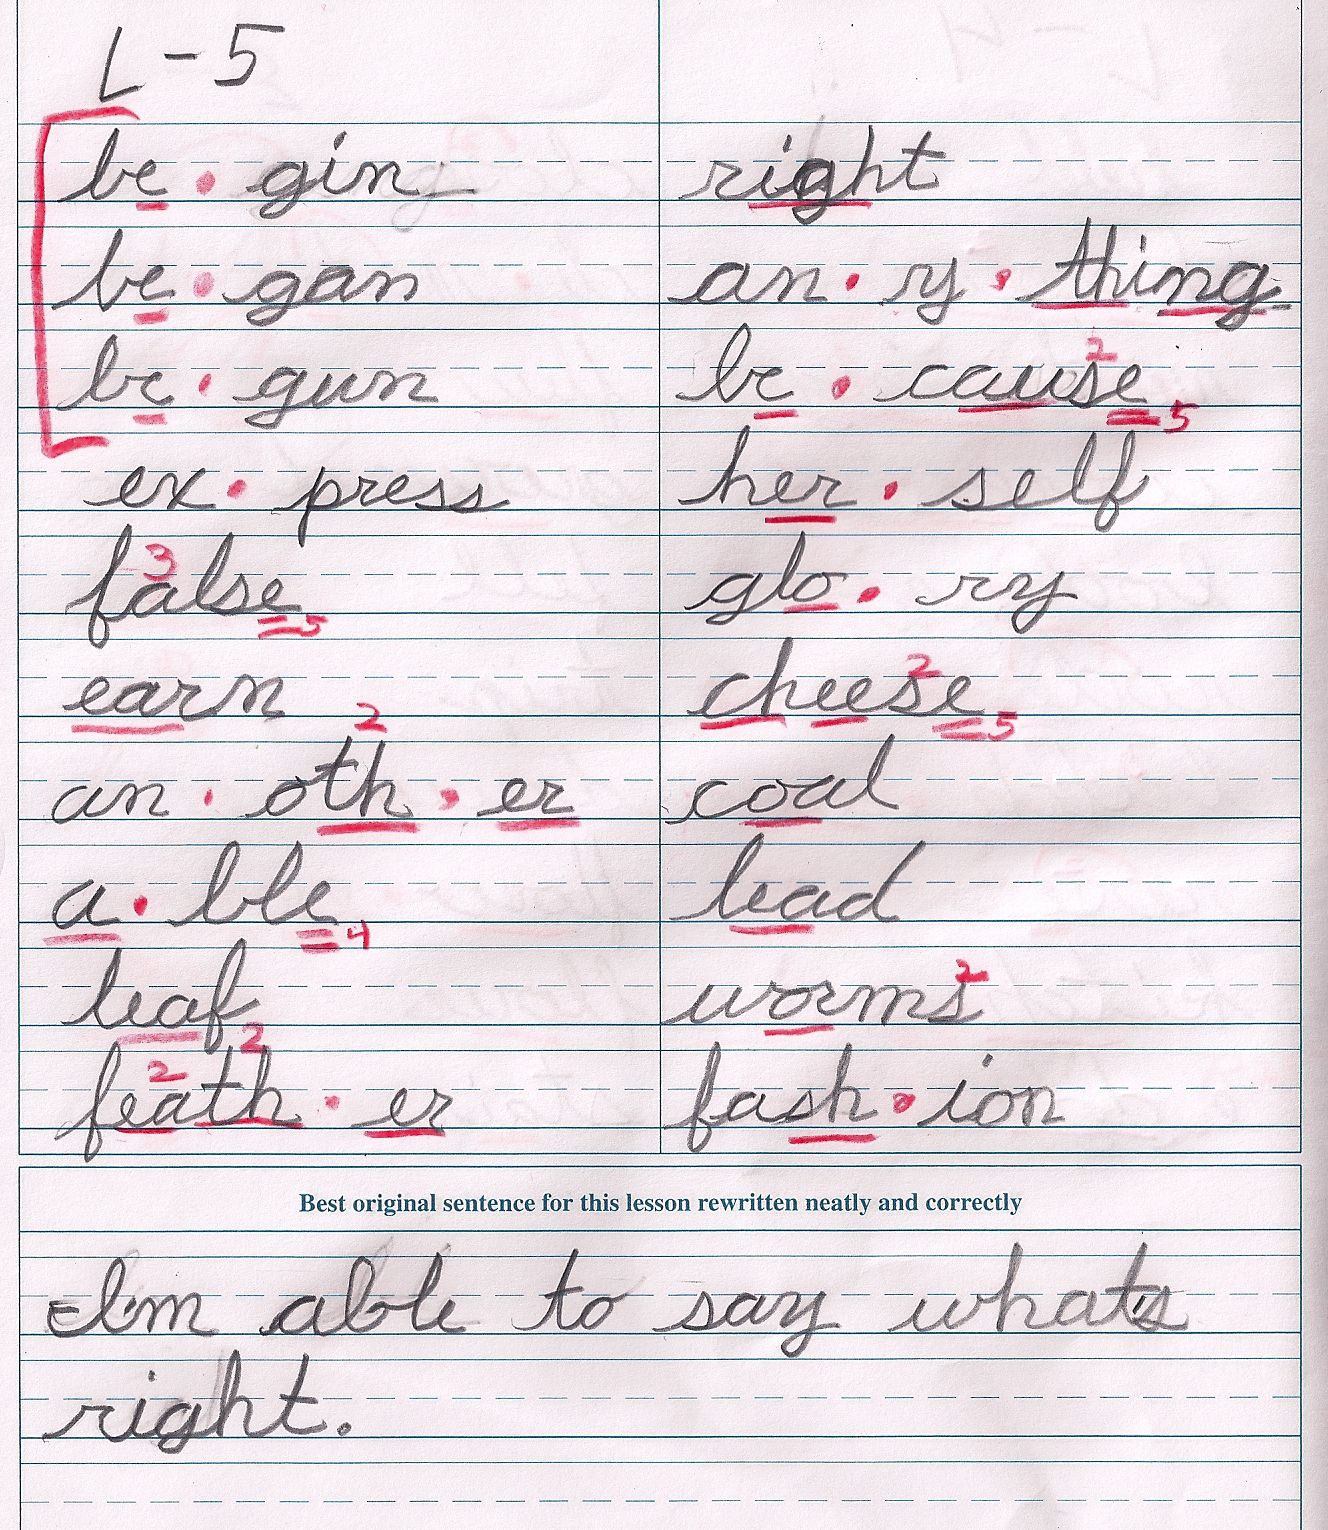 L-5
be · gin
be · gan
be · gun
ex · press
3
false 5
earn
2
an · oth · er
a · ble 4
leaf
2 2
feath · er
right
an · y · thing
2
be · cause 5
her · self
glo · ry
2
cheese 5
coal
lead
2
worms
fash · ion
Best original sentence for this lesson rewritten neatly and correctly
I'm able to say what's
right.